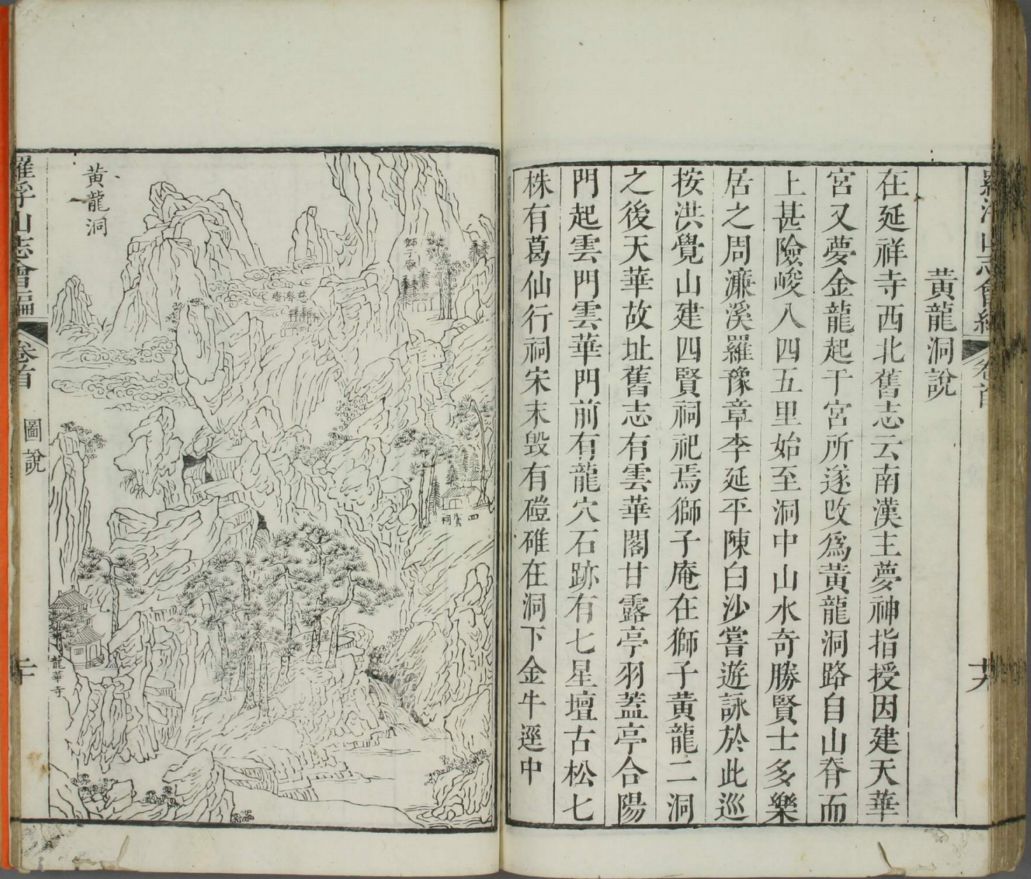 羅浮山志會編
卷首
黃龍洞說
在延祥寺西北舊志云南漢主夢神指授因建天華
宮又夢金龍起于宮所遂改爲黃龍洞路自山脊而
上甚險峻入四五里始至洞中山水奇勝賢士多樂
居之周濂溪羅豫章李延平陳白沙嘗遊詠於此巡
按洪覺山建四賢祠祀焉獅子庵在獅子黃龍二洞
之後天華故址舊志有雲華閣甘露亭羽蓋亭合陽
門起雲門雲華門前有龍穴石跡有七星壇古松七
株有葛仙行祠宋末毀有磴碓在洞下金牛逕中
黃龍洞
四賢祠
龍華寺
羅浮山志會編
卷首
圖說